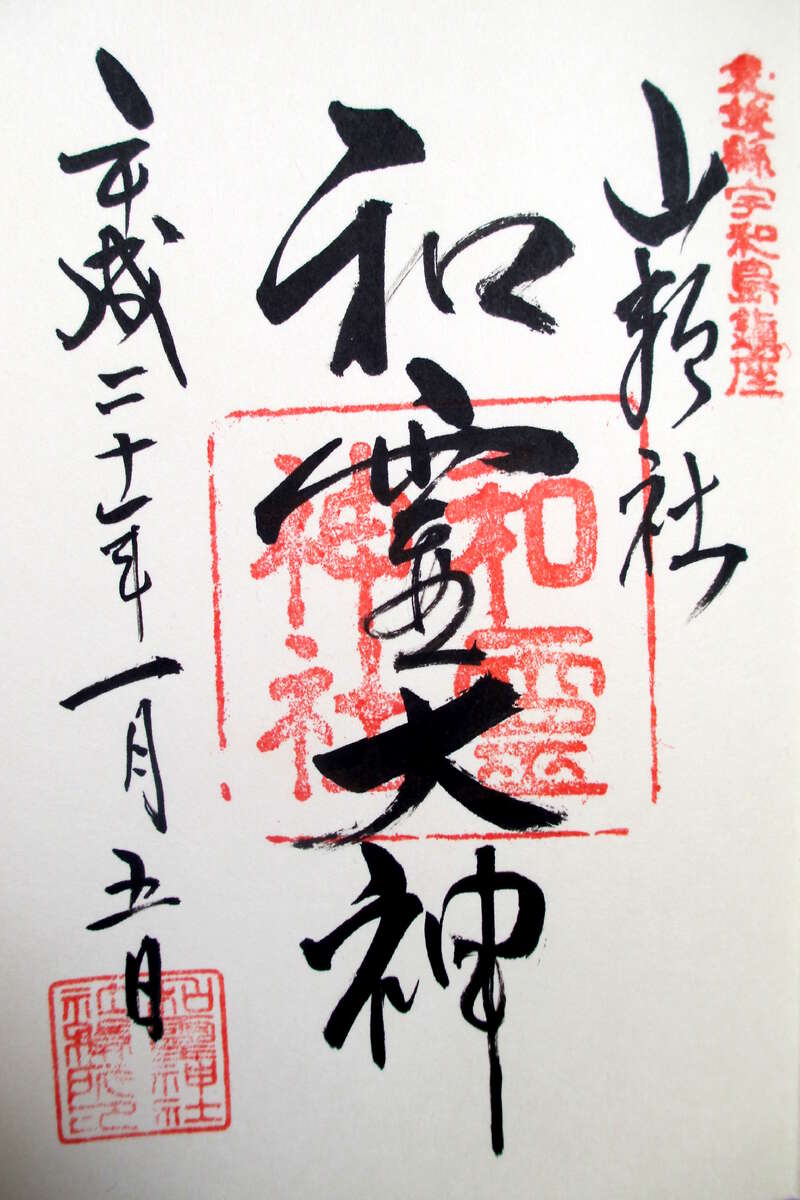 愛媛縣宇和島鎮座
山頼社
和霊大神
和霊
神社
平成二十一年一月五日
和靈神社
社務所印